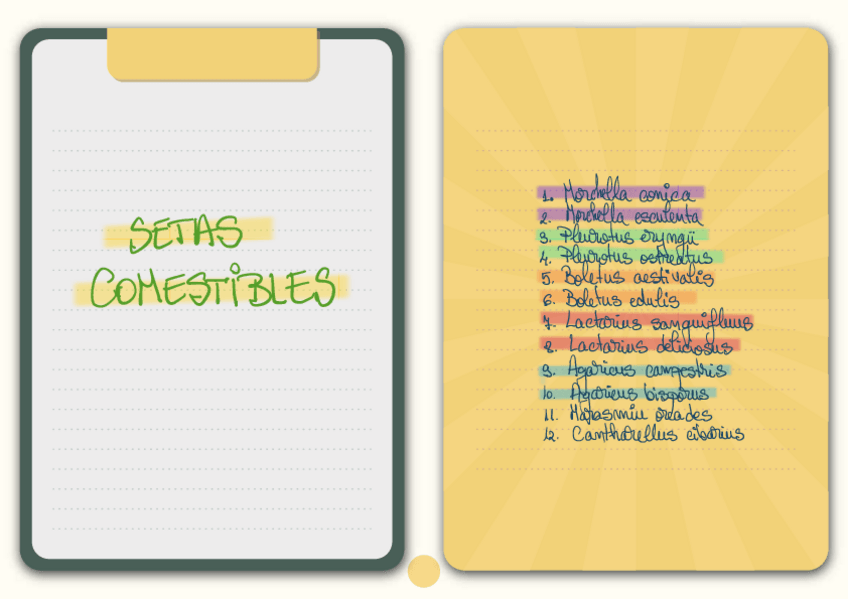 SETAS
COMESTIBLES
1. Morchella conica
2. Morchella esculenta
3. Pleurotus eryngii
4. Pleurotus ostreatus
5. Boletus aestivalis
6. Boletus edulis
7. Lactarius sanguifluus
8. Lactarius deliciosus
9. Agaricus campestris
10. Agaricus bisporus
11. oreades
12. Cantharellus cibarius